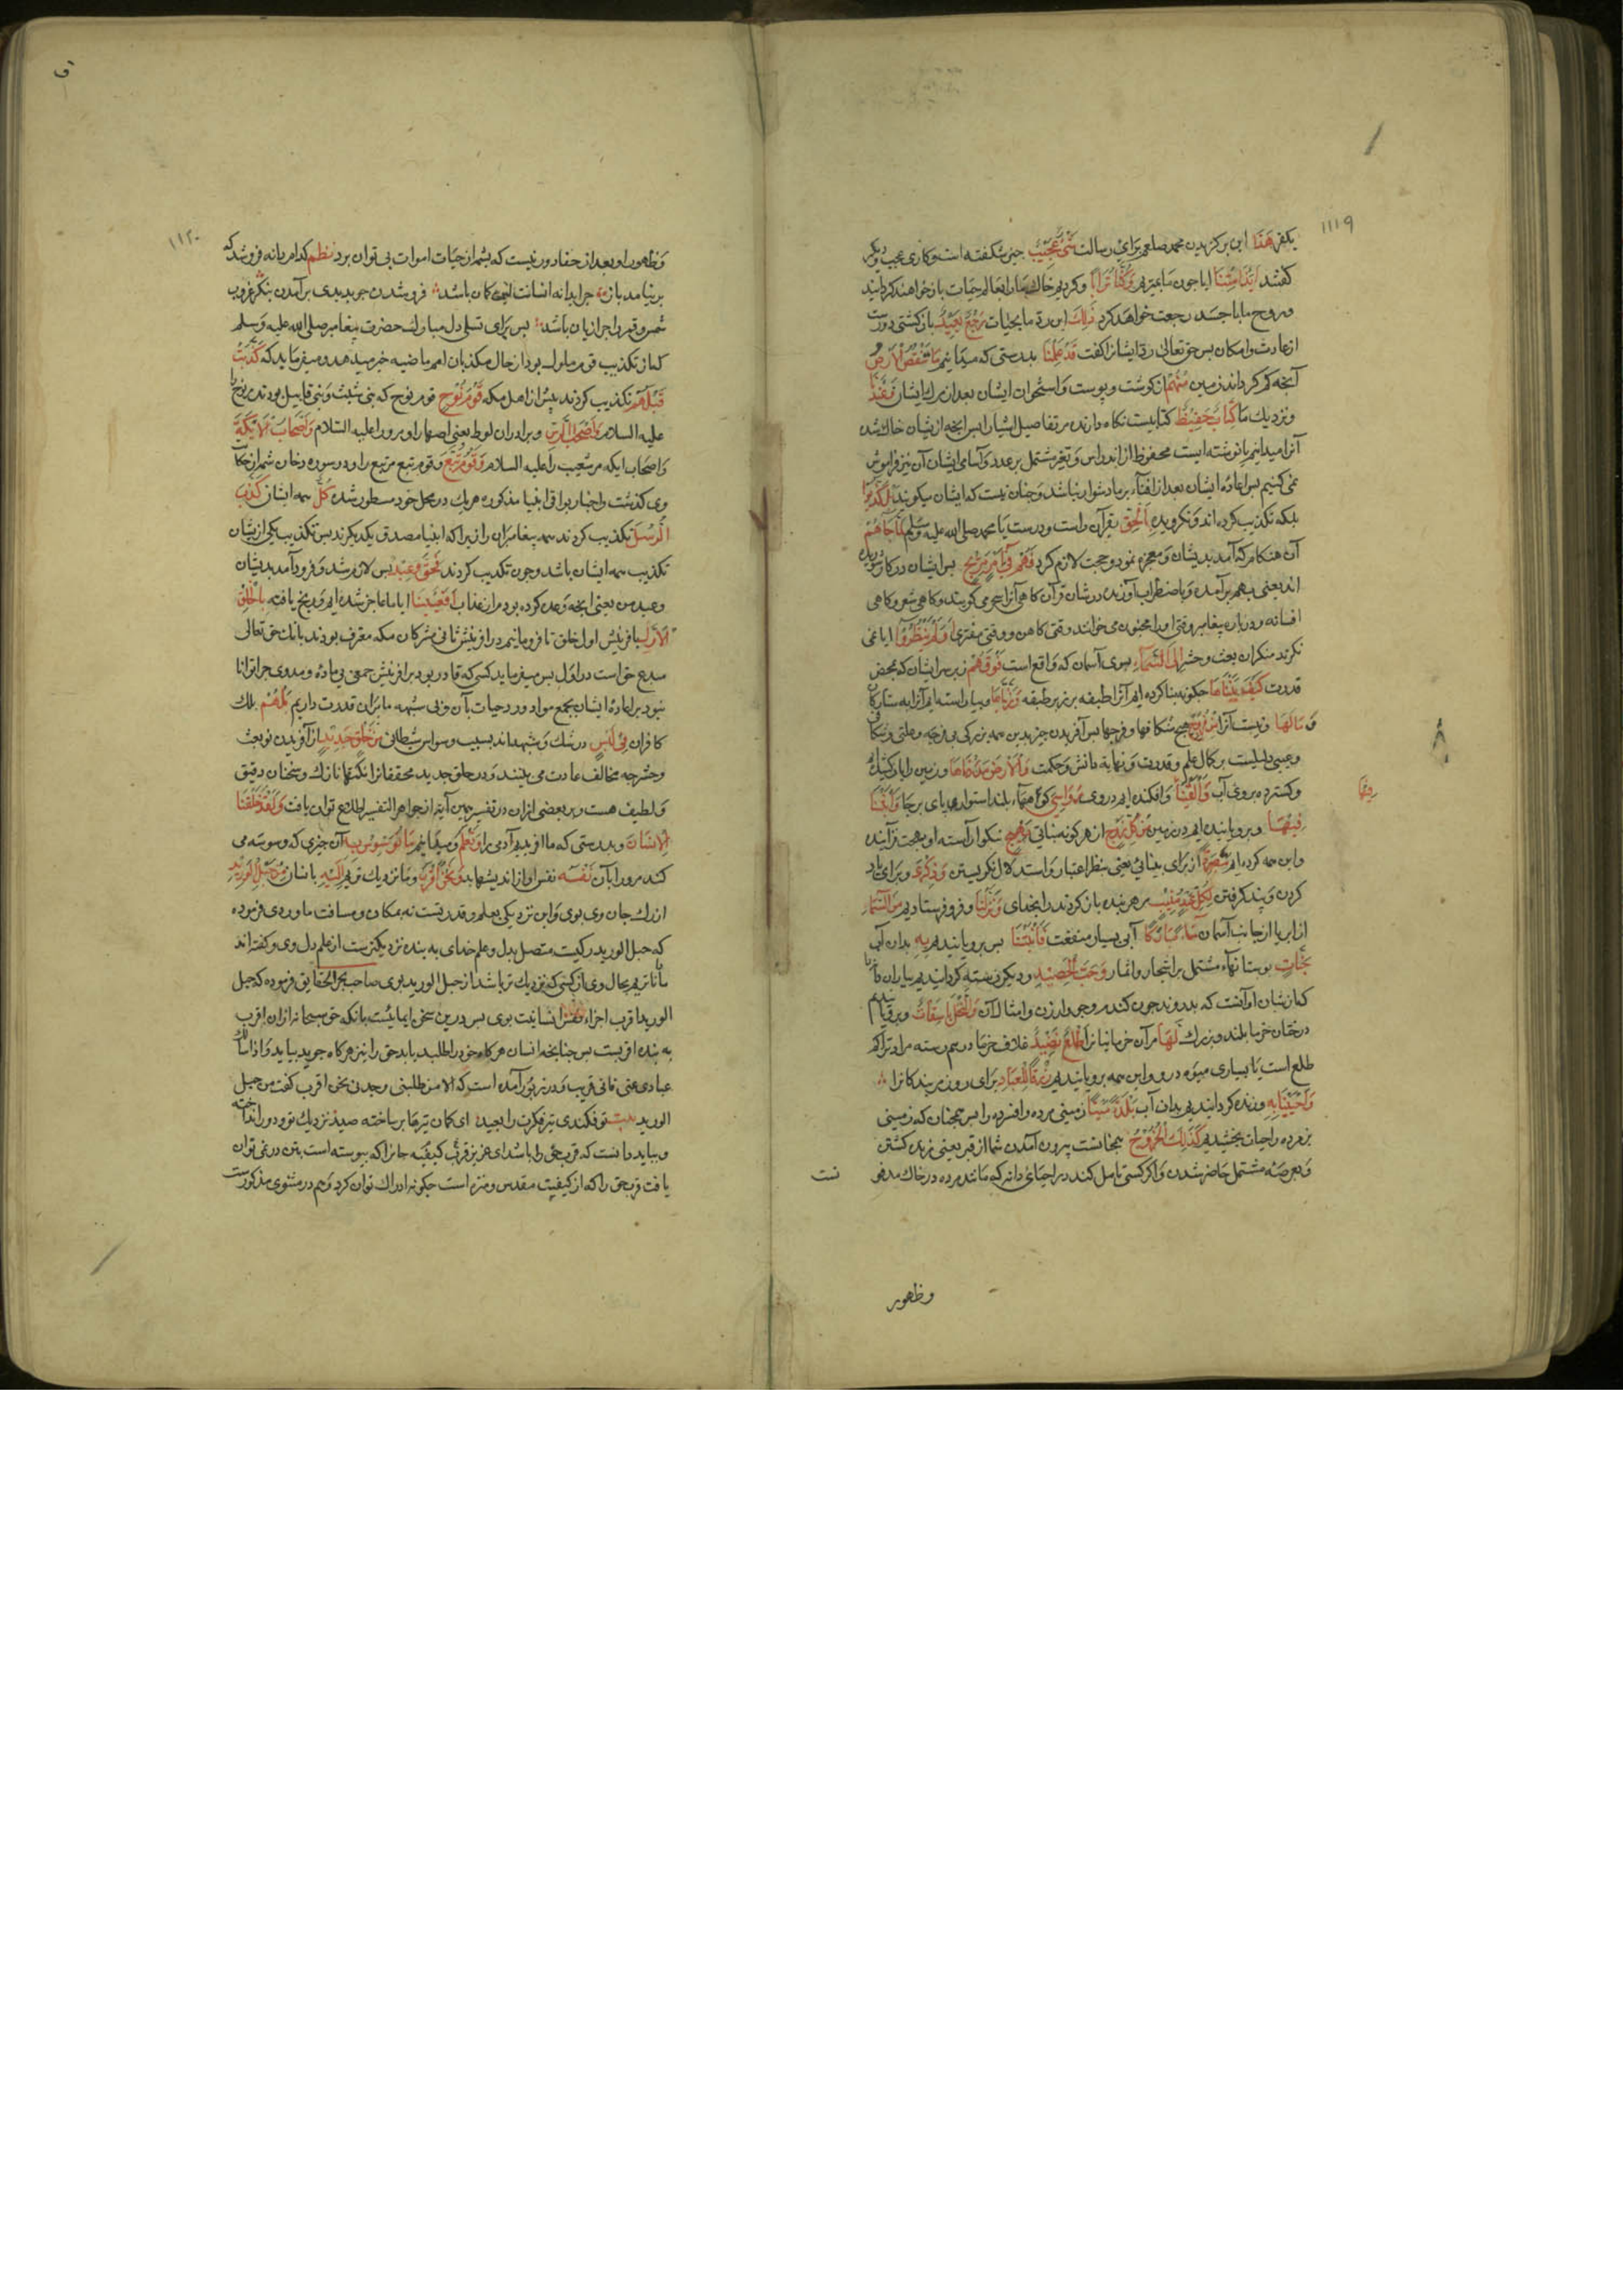 ١١١٩
بكفر هَذَا این برگزیدن محمد صلعم برای رسالت شَیْءٌ عَجِیْبٌ چیزی شگفته است و کاری عجیب و دیگر
کفتند اَئِذَا مِتْنَا ایا چون ما بمیریم وَکُنَّا تُرَابًا و کردیم خاك مارا بعالم حیات باز خواهند کردانید
و روح ما با جسد رجعت خواهد کرد ذٰلِكَ این رد ما بحیات رَجْعٌ بَعِیْدٌ باز کشتی دورست
از عادت و امکان پس حق تعالی رد ایشانرا کفت قَدْ عَلِمْنَا بدرستی که میدانیم مَا تَنْقُصُ الْاَرْضُ
آنچه کم کرداند زمین مِنْهُمْ از کوشت و پوست و استخوان ایشان بعد از مرك ایشان وَعِنْدَنَا
و نزدیك ما کِتَابٌ حَفِیْظٌ کتابیست نکاه دارنده مر تفاصیل اشیا را پس آنچه از ایشان خاك شد
آنرا میدانیم یا نوشته ایست محفوظ از اندراس و تغیر مشتمل بر عدد و اسامی ایشان آن نیز فراموش
نمی کنیم پس اعاده ایشان بعد از افناء بر ما دشوار نباشد و چنان نیست که ایشان میکویند بَلْ کَذَّبُوْا
بلکه تکذیب کرده اند و نکرویده بِالْحَقِّ بقرآن راست و درست یا محمد صلی الله علیه وسلم لَمَّا جَاءَهُمْ
آن هنکام که آمد بدیشان و معجزه نمود و حجت لازم کرد فَهُمْ فِیْ اَمْرٍ مَرِیْجٍ پس ایشان در کار شوریده
اند یعنی بهم برآمده و باضطراب آورنده در شان قرآن کاهی آنرا سحر می کویند و کاهی شعر و کاهی
افسانه و درباره پیغامبر وقتی اورا مجنون می خوانند وقتی کاهن و وقتی مفتری اَفَلَمْ یَنْظُرُوْا ایا نمی
نکرند منکران بعث و حشر اِلَی السَّمَاءِ بسوی آسمان که واقع است فَوْقَهُمْ زبر سر ایشان که بمحض
قدرت کَیْفَ بَنَیْنَاهَا چکونه بنا کرده ایم آنرا طبقه بر زبر طبقه وَزَیَّنَّاهَا و بیاراسته ایم آنرا به ستارکان
وَمَا لَهَا و نیست آنرا مِنْ فُرُوْجٍ هیچ شکافها و فرجها پس آفریدن چیز بدین همه بزرکی بی فرجه و خللی و شکافی
و عیبی دلیلیست بر کمال علم و قدرت و نهایه دانش و حکمت وَالْاَرْضَ مَدَدْنَاهَا و زمین را باز کشیده
و کسترده بر روی آب وَاَلْقَیْنَا و افکنده ایم در وی رَوَاسِیَ کوهاء بلند استوار پای بر جا وَاَنْبَتْنَا
فِیْهَا و برویانیده ایم در زمین مِنْ کُلِّ زَوْجٍ از هر کونه نباتی بَهِیْجٍ نیکو آراسته او بهجت فزاینده
و این همه کرده ایم تَبْصِرَةً از برای بینایی یعنی بنظر اعتبار و استدلال نکریستن وَذِکْرٰی و برای یاد
کردن و پند کرفتن لِکُلِّ عَبْدٍ مُنِیْبٍ مر هر بنده باز کردنده بخدای وَنَزَّلْنَا و فرو فرستادیم مِنَ السَّمَاءِ
از ابر یا از جانب آسمان مَاءً مُبَارَکًا آبی بسیار منفعت فَاَنْبَتْنَا پس برویانیدیم بِهٖ بدان آب
جَنَّاتٍ بوستانهاء مشتمل بر اشجار و اثمار وَحَبَّ الْحَصِیْدِ و دیکر رسته کردانیدیم بباران دانها
که از شان او آنست که بدروند چون کندم و جو و ارزن و امثال آن وَالنَّخْلَ بَاسِقَاتٍ و برویانیدیم
درختان خرما بلند و بزرك لَهَا مر آن خرمابنانرا طَلْعٌ نَضِیْدٌ غلاف خرما در هم رسته مراد تراکم
طلع است یا بسیاری میوه درو و این همه برویانیدیم رِزْقًا لِلْعِبَادِ برای روزی بندکانرا
وَاَحْیَیْنَا بِهٖ و زنده کردانیدیم بدان آب بَلْدَةً مَیْتًا زمینی مرده و افسرده را پس همچنان که زمینی
پژمرده را حیات بخشیدیم کَذٰلِكَ الْخُرُوْجُ همچنانست بیرون آمدن شما از قبر یعنی زنده کشتن
و بعرصه مشتمل حاضر شدن و اکر کسی تامل کند در احیای دانه که مانند مرده در خاك مدفو
نست
فیها
و ظهور
ق
١١٢٠
و ظهور او بعد از خفا دور نیست که بشما از حیات اموات پی توان برد نظم کدام دانه فرو شد که
بر نیامد باز چرا بدانه انسانت این کمان باشد فرو شدن چو بدیدی برآمدن بنکر غروب
شمس و قمر را چرا زیان باشد پس برای تسلی دل مبارك حضرت پیغامبر صلی الله علیه وسلم
که از تکذیب قوم ملول بود از حال مکذبان امم ماضیه خبر میدهد و میفرماید که کَذَّبَتْ
قَبْلَهُمْ تکذیب کردند پیش از اهل مکه قَوْمُ نُوْحٍ قوم نوح که بنی شیث و بنی قابیل بودند نوح را
علیه السلام وَاَصْحَابُ الرَّسِّ و برادران لوط یعنی اصهار او مرورا علیه السلام وَاَصْحَابُ الْاَیْکَةِ
و اصحاب ایکه مر شعیب را علیه السلام وَقَوْمُ تُبَّعٍ و قوم تبع مر تبع را و در سوره دخان شمه از حکایت
وی کذشت و اخبار بواقی انبیا مذکوره هریك در محل خود مسطور شده کُلٌّ همه ایشان کَذَّبَ
الرُّسُلَ تکذیب کردند همه پیغامبران را زیرا که انبیا مصدق یکدیکرند پس تکذیب یکی از ایشان
تکذیب همه ایشان باشد و چون تکذیب کردند فَحَقَّ وَعِیْدِ پس لازم شد و فرود آمد بدیشان
وعید من یعنی آنچه وعده کرده بودم از عذاب اَفَعَیِیْنَا ایا ما عاجز شده ایم و رنج یافته بِالْخَلْقِ
الْاَوَّلِ بافرینش اول خلق تا فرو مانیم در آفرینش ثانی مشرکان مکه معترف بودند بانك حق تعالی
مبدع حق است در اول پس میفرماید کسی که قادر بود بر افرینش جمعی بی ماده و مددی چرا توانا
نبود بر اعاده ایشان بجمع مواد و رد حیات بآن و بی شبهه ما بران قدرت داریم بَلْ هُمْ بلك
کافران فِیْ لَبْسٍ در شك و شبهه اند بسبب وسواس شیطانی مِنْ خَلْقٍ جَدِیْدٍ از آفریدن نو بعث
و حشر چه مخالف عادت می بینند و در خلق جدید محققانرا نکتهاء نازك و سخنان دقیق
و لطیف هست و بر بعضی از ان در تفسیر همین آیه از جواهر التفسیر اطلاع توان یافت وَلَقَدْ خَلَقْنَا
الْاِنْسَانَ و بدرستی که ما آفریدیم آدمی را وَنَعْلَمُ و میدانیم مَا تُوَسْوِسُ بِهٖ آن چیزی که وسوسه می
کند مرورا بآن نَفْسُهٗ نفس او از اندیشهای بد وَنَحْنُ اَقْرَبُ و ما نزدیك تریم اِلَیْهِ بانسان مِنْ حَبْلِ الْوَرِیْدِ
از رك جان وی بوی و این نزدیکی بعلم و قدرتست نه بمکان و مسافت ماوردی فرموده
که حبل الورید رکیست متصل بدل و علم خدای به بنده نزدیکترست از علم دل وی و کفته اند
ما داناتریم بحال وی از کسی که نزدیك تر باشد از حبل الورید بوی صاحب بحر الحقایق فرموده که حبل
الورید اقرب اجزاء نفس انسانیت بوی پس درین سخن ایمائیست بانکه حق سبحانه از ان اقرب
به بنده اقربست پس چنانچه انسان هرکاه خود را طلبد بیابد حق را نیز هرکاه جوید بیابد وَاِذَا سَاَلَكَ
عبادی عنی فانی قریب و در زبور آمده است که الا من طلبنی وجدنی نحن اقرب کفت من حبل
الورید بیت تو فکندی تیر فکرت را بعید ای کمان تیرها بر ساخته صید نزدیك تو و دور انداخته
و بباید دانست که قرب حق را باشد ای عزیز قرب بی کیفیه جانرا که پیوسته است بتن در نمی توان
یافت قرب حق را که از کیفیت مقدس و منزه است چکونه ادراك توان کرد و هم در مثنوی مذکورست